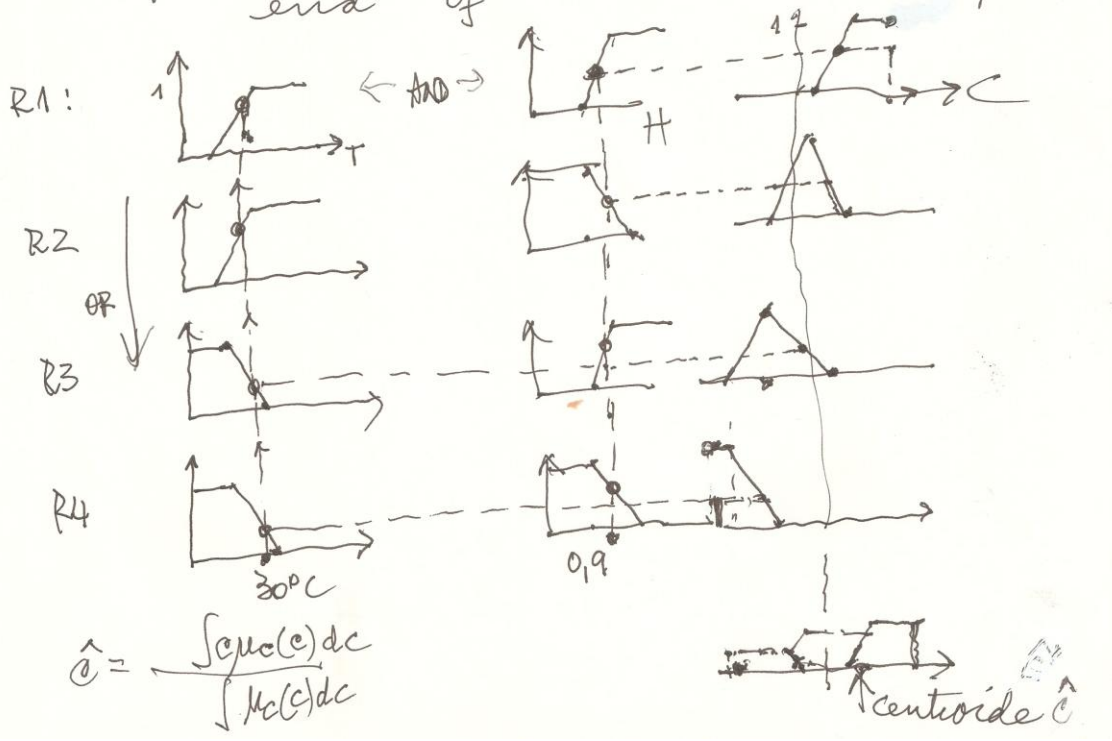 end of
R1:
1
T
← AND →
H
1
C
R2
OR
R3
R4
30°C
0,9
ĉ = ∫cμc(c)dc
∫μc(c)dc
centroide ĉ